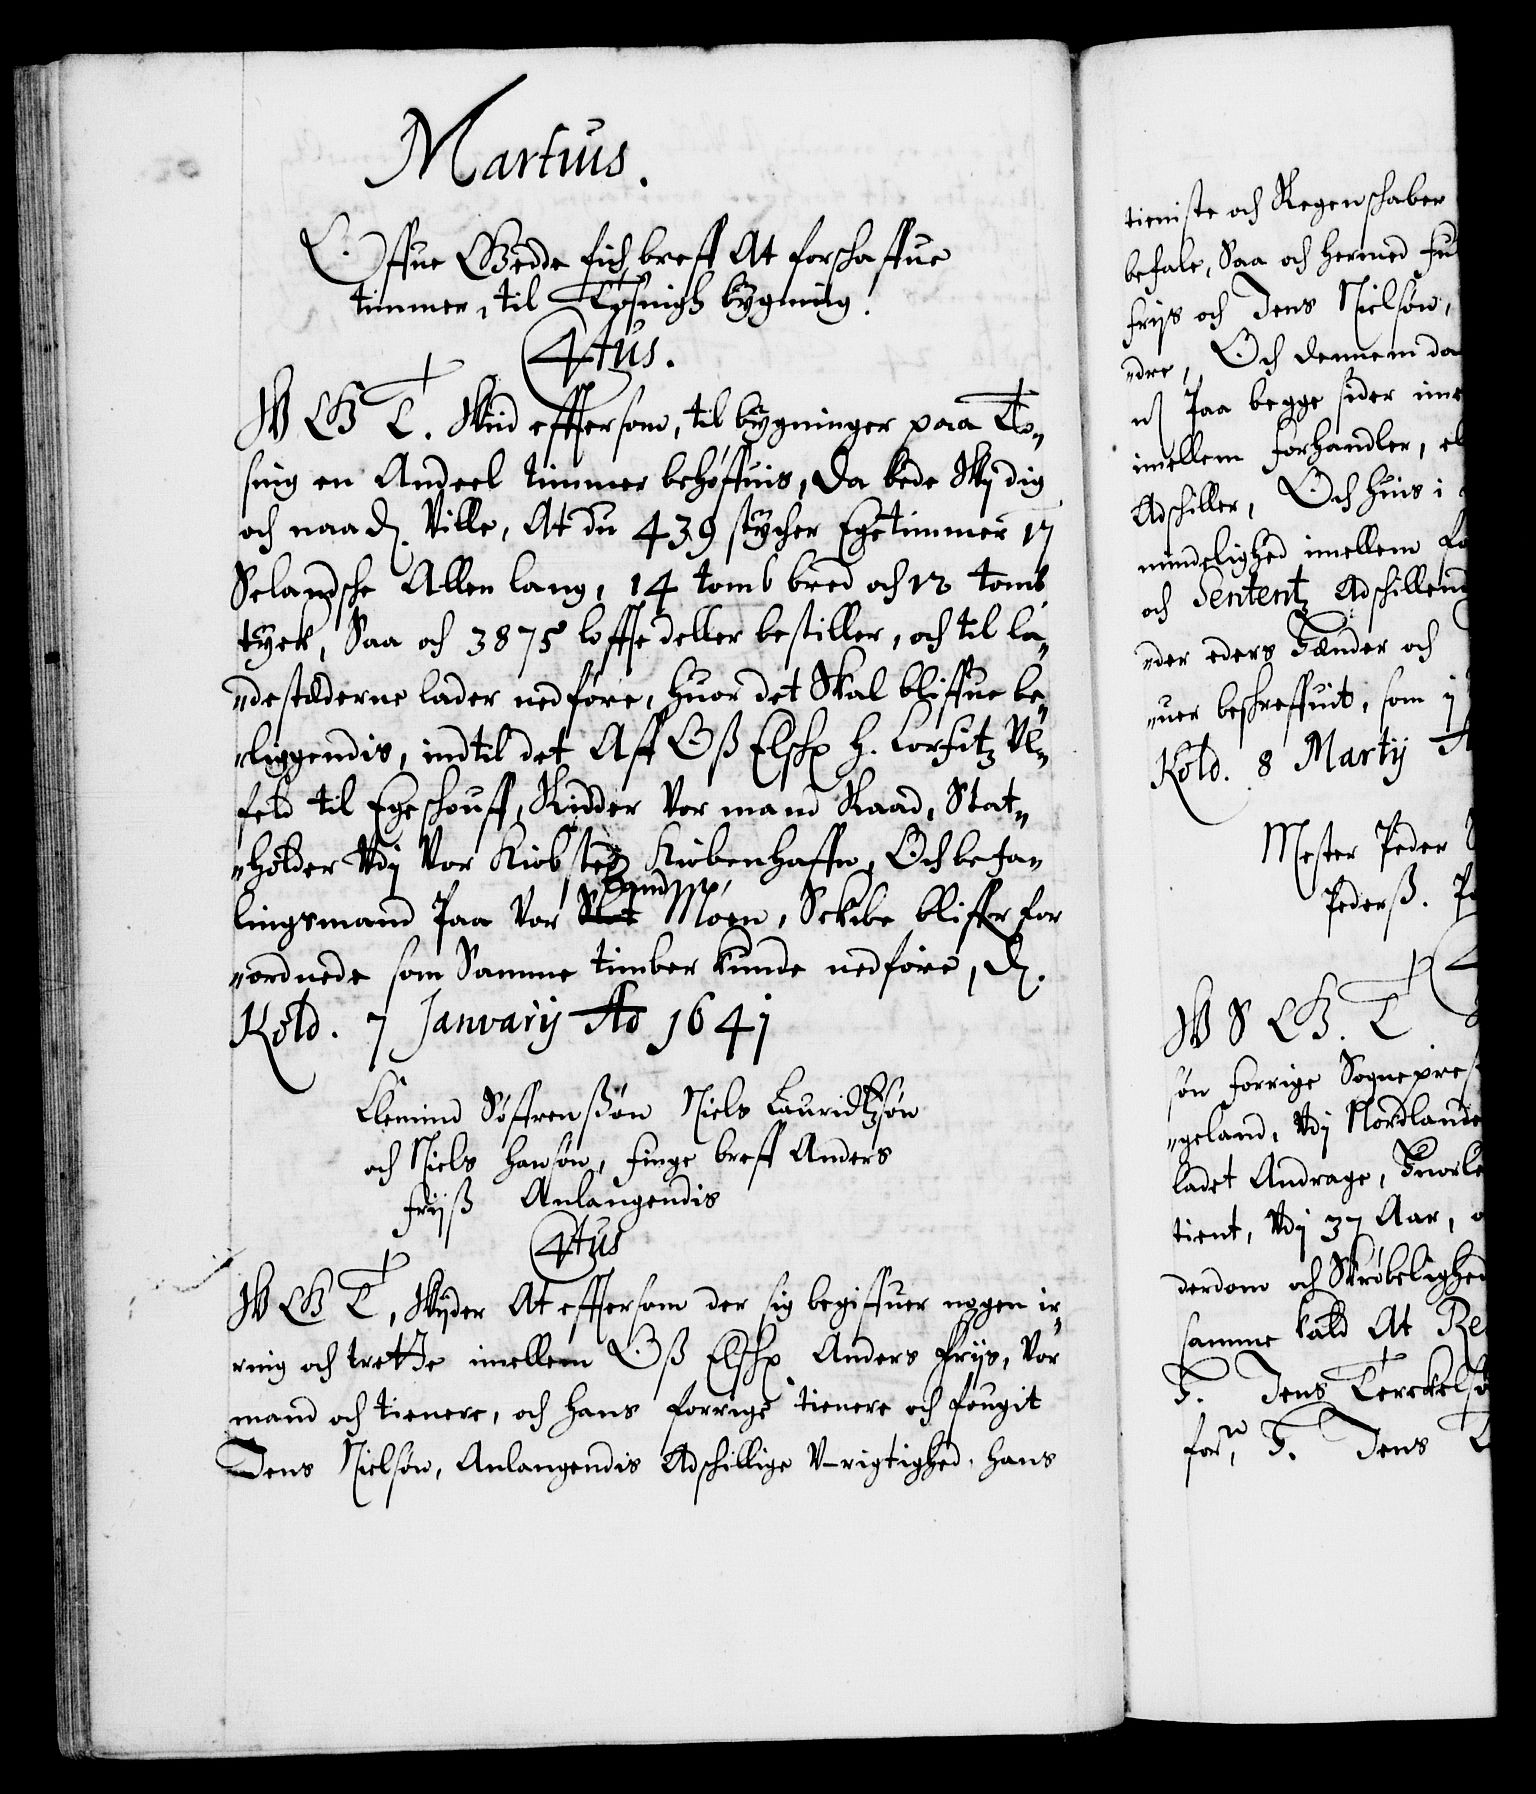 Martius.
Offue Giedde fich breff At forschaffue
timmer, til Tosingh bygning.
4tus.
W G T. Wiid effterson, til bygninger paa To„
sing en Andeel timmer behøffuis, Da bede Wy dig
och naad. Ville, At du 439 stycher Egetimmer 17
Selandsche Allen lang, 14 tomb bred och 12 tomb
tyck, Saa och 3875 loffte deller bestiller, och til la„
„destæderne lader nedføre, huor det Skal bliffue be„
„liggendis, indtil det Aff Oß Elschx H. Corfitz Ul„
feld til Egeschouff, Ridder Vor mand Raad, Stat„
„holder Vdj Vor Kiøbsted Kiøbenhaffn, Och befa„
lingsmand Paa Vor Land Møen, Schibe bliffer for
„ordnede som Samme timber kunde nedføre, D.
Kold. 7 Januarij Ao 1641
Clemind Søffrenßøn Niels Lauridtzøn
och Niels hansøn, finge breff Anders
frijß Anlangendis
4tus
W G T, Wyder At effterson der sig begiffuer nogen ir„
ring och trette imellem Oß Elschx Anders frijs, Vor
mand och tienere, och hans forrige tienere och fougit
Jens Nielsøn, Anlangendis Adschillige V-rigtighed, hans
tieniste och Regenschaber
befale, Saa och hermed fu
frijs och Jens Nielsøn,
„dre, Och dennem da
Paa begge sider ime
imellem forhandler, el
Adschiller, Och huis i
mindelighed imellem fo
och Sententz Adschillend
„der eders Hænder och
„uer beschreffuit, som y
Kold. 8 Martij A
Mester Peder
Pederß. P
W S G. T
søn forrige Sognepres
„geland, Vdj Nordlande
ladet Andrage, huorle
tient, Vdj 37 Aar, o
derdom och Skrøbelighed
samme kald At Re
H. Jens Terckelsø
for, H. Jens T